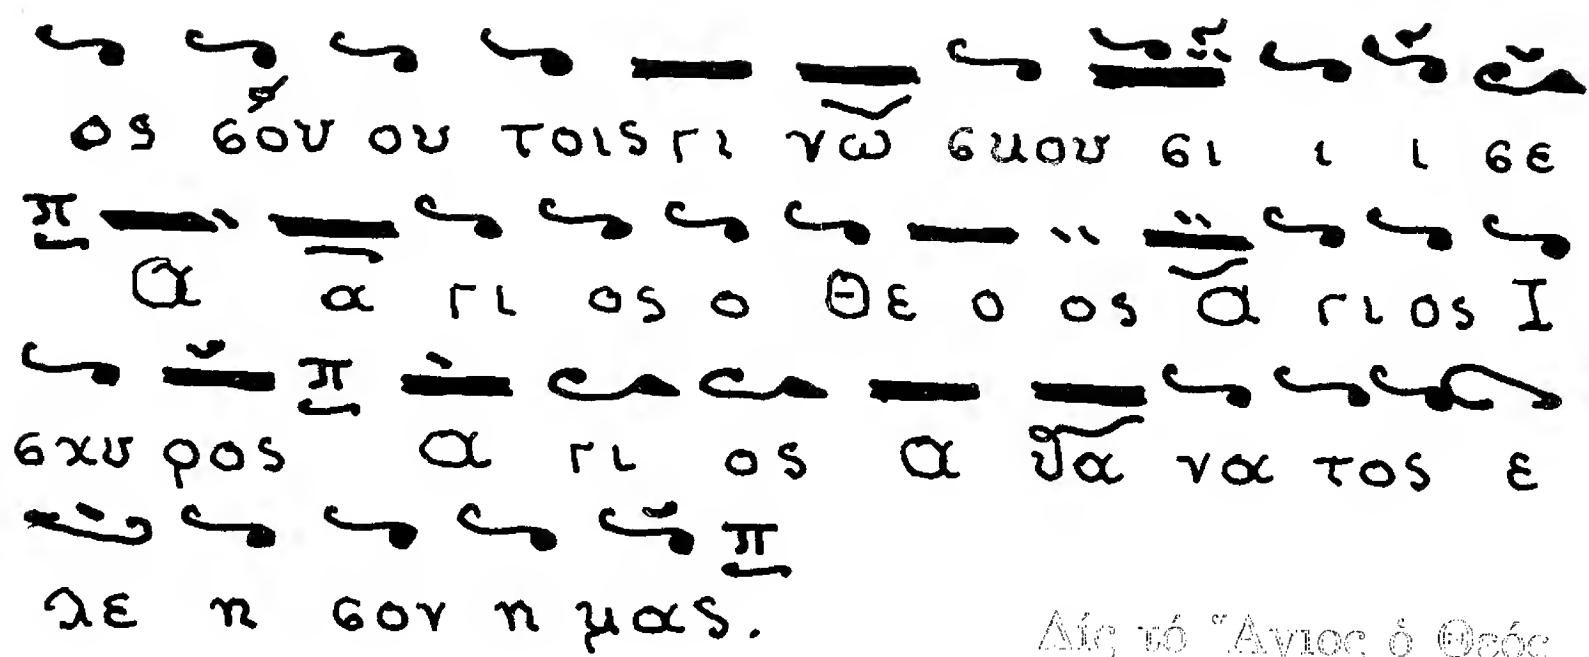 ος σου ου τοις γι νω σκου σι ι ι σε
π Α α γι ος ο Θε ο ος Α γι ος Ι
σχυ ρος π Α γι ος α θα να τος ε
λε η σον η μας. π
Δίς τό Ἅγιος ὁ Θεός